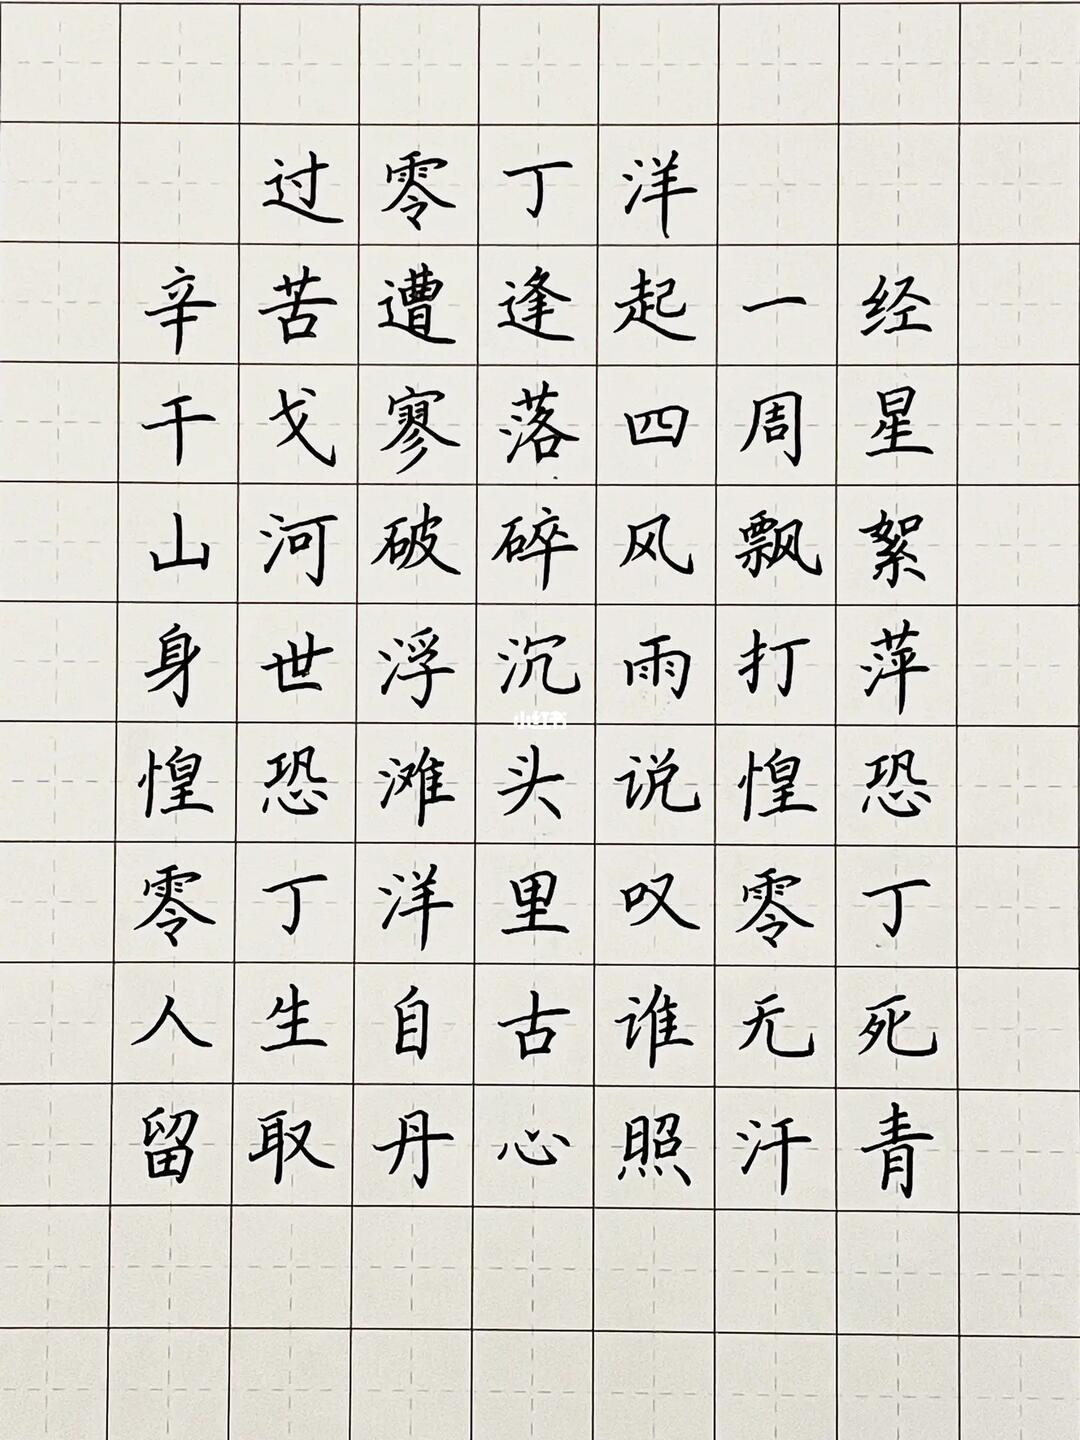 过零丁洋
辛苦遭逢起一经
干戈寥落四周星
山河破碎风飘絮
身世浮沉雨打萍
惶恐滩头说惶恐
零丁洋里叹零丁
人生自古谁无死
留取丹心照汗青
小红书